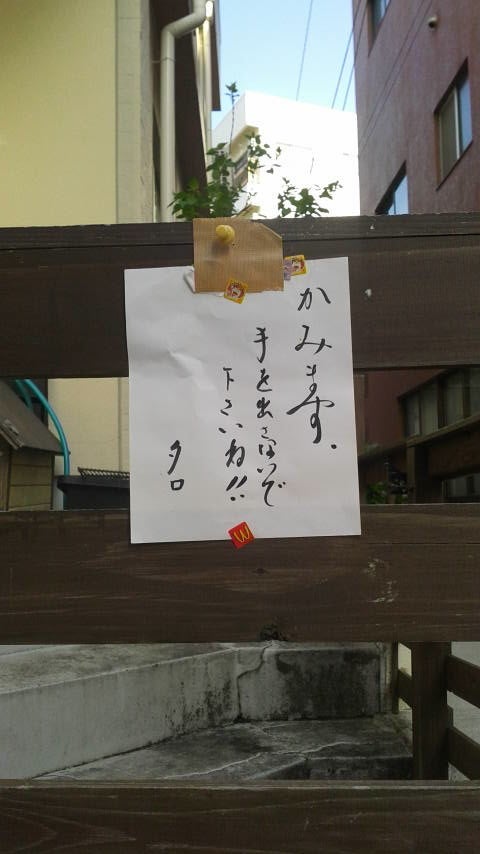 かみます.
手を出さないで
下さいね!!
タロ
M